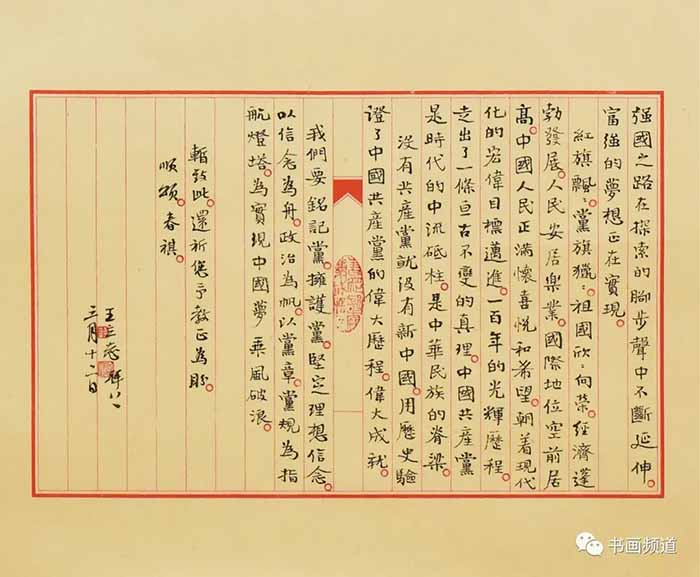 强國之路在探索的腳步聲中不斷延伸。
富强的夢想正在實現。
紅旗飄〻黨旗獵〻祖國欣〻向榮。經濟蓬
勃發展。人民安居樂業。國際地位空前居
髙。中國人民正滿懷喜悦和希望。朝着現代
化的宏偉目標邁進。一百年的光輝歷程。
走出了一條亘古不變的真理。中國共産黨
是時代的中流砥柱。是中華民族的脊梁。
没有共産黨就没有新中國。用歷史驗
證了中國共産黨的偉大歷程。偉大成就。
我們要銘記黨。擁護黨。堅定理想信念。
以信念為舟。政治為帆。以黨章。黨規為指
航燈塔。為實現中國夢乘風破浪。
暫致此。還祈您予教正為盼
順頌春祺。
王立志拜
三月十二日
书画频道